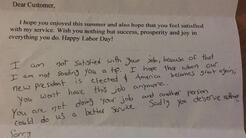 Dear Customer,
I hope you enjoyed this summer and also hope that you feel satisfied
with my service. Wish you nothing but success, prosperity and joy in
everything you do. Happy Labor Day!
I am not satisfied with your job, because of that
I am not sending you a tip. I hope that when our
new president is elected & America becomes great again,
you won't have this job anymore.
You are not doing your job and another person
could do us a better service. Sadly you deserve neither
Sorry